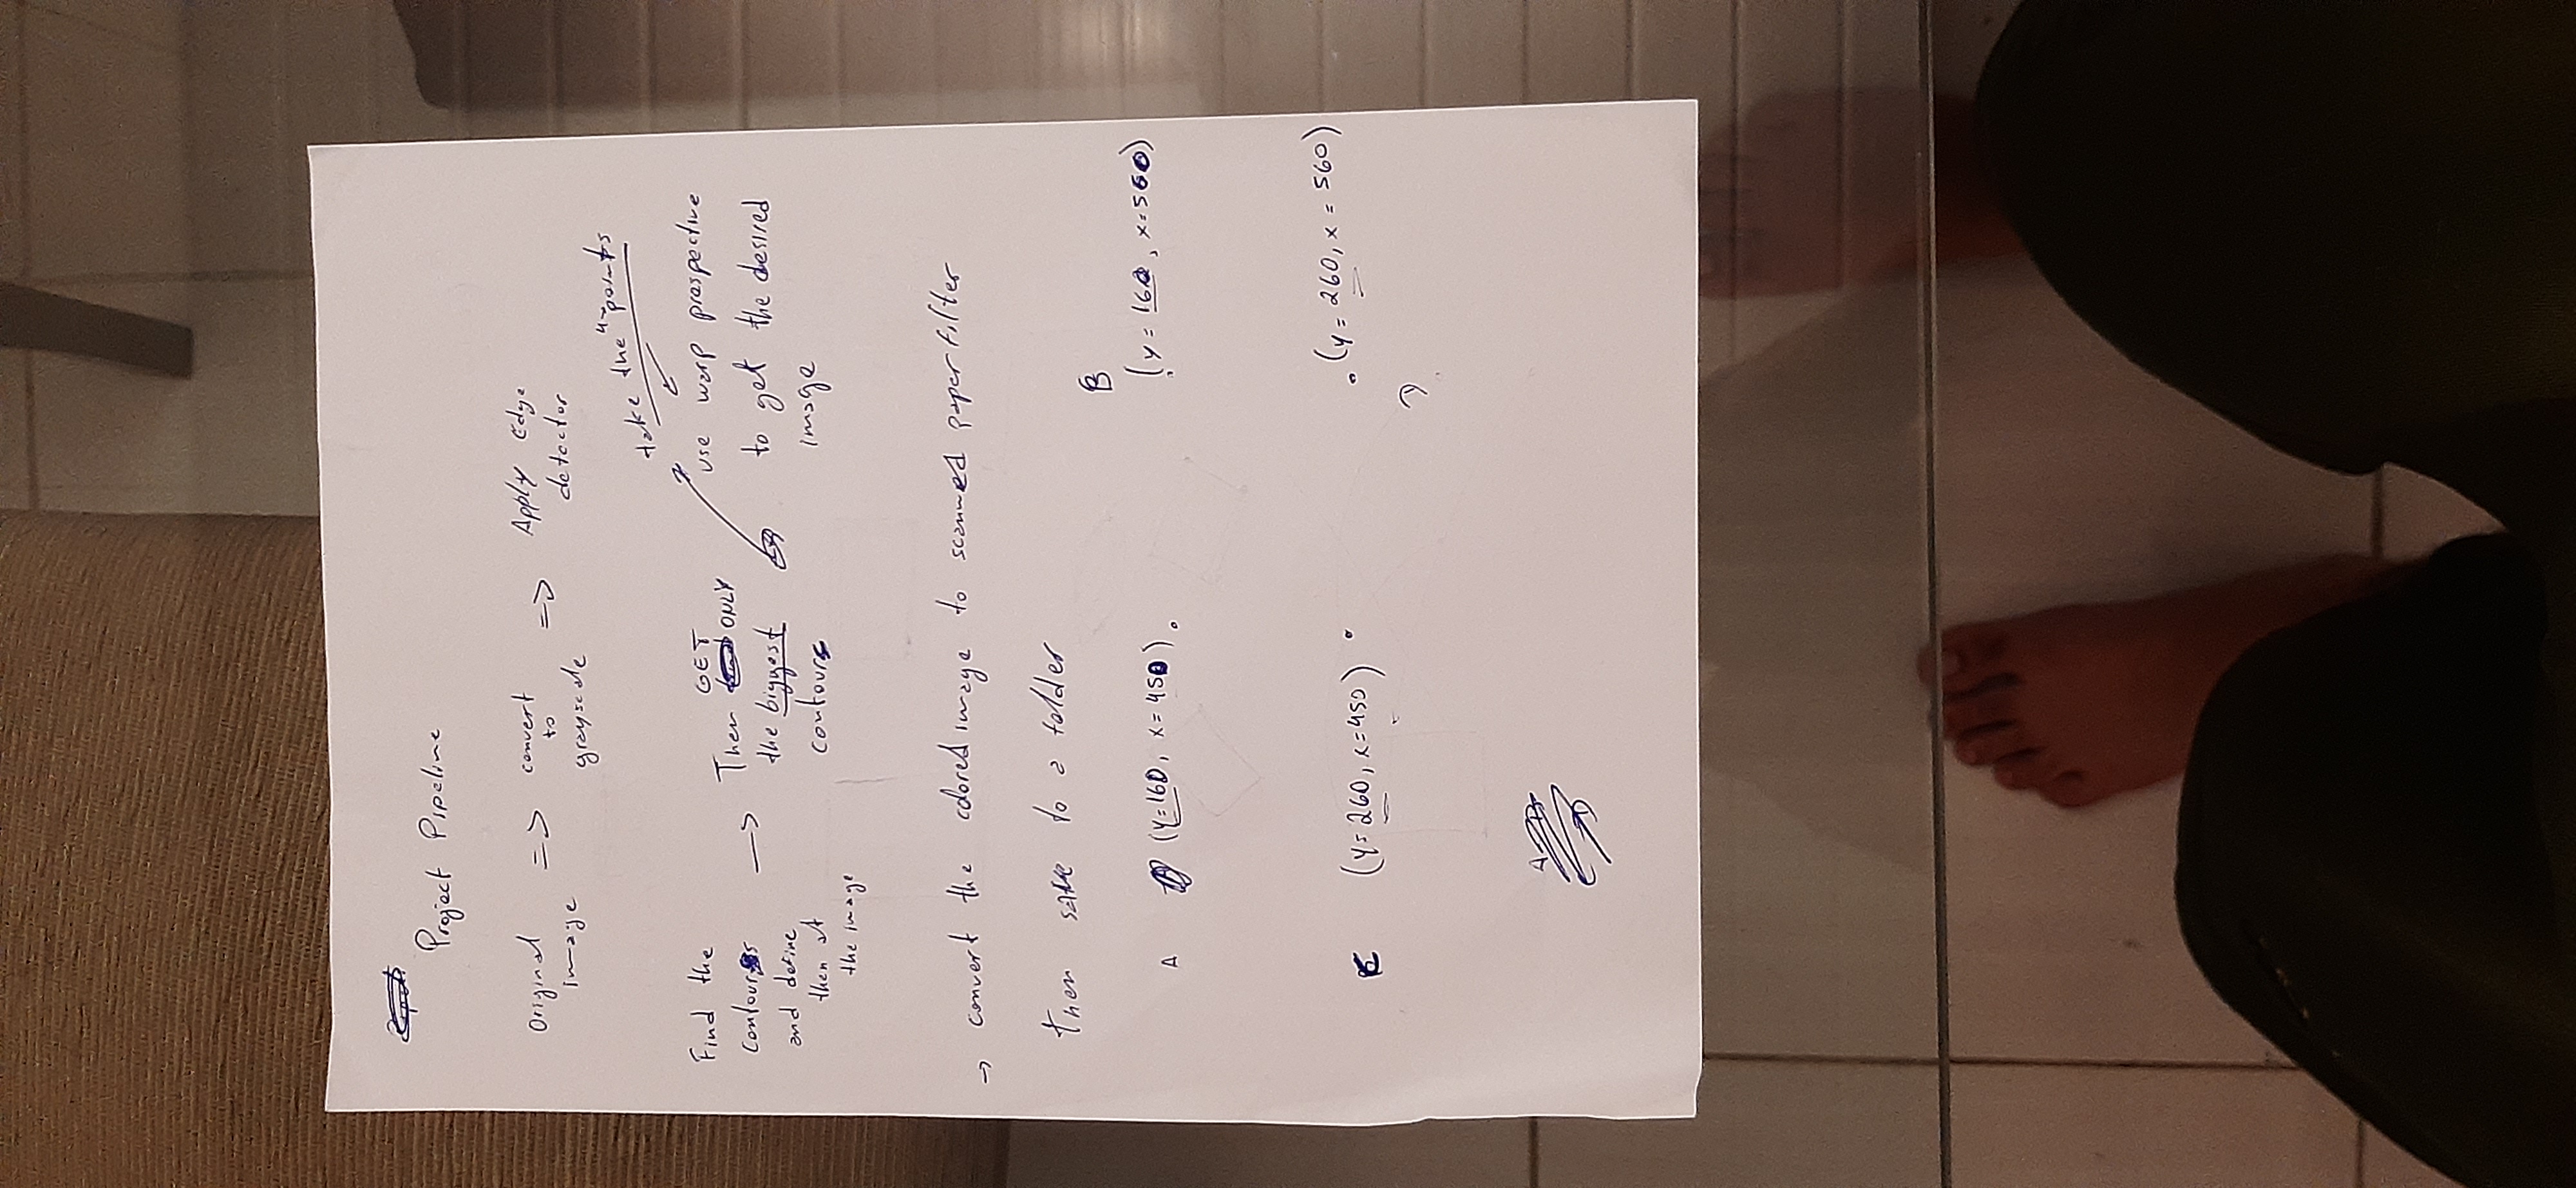 Project Pipeline
Original image => convert to grayscale => Apply Edge detector
Find the contours and define then at the image
→
Then GET ONLY the biggest contour
take the 4 points
use warp prespective
to get the desired
image
→ convert the colored image to scanned paper filter
then save to a folder
A (y=160, x=450).
B
(y=160, x=560)
C (y=260, x=450)
(y=260, x=560)
D